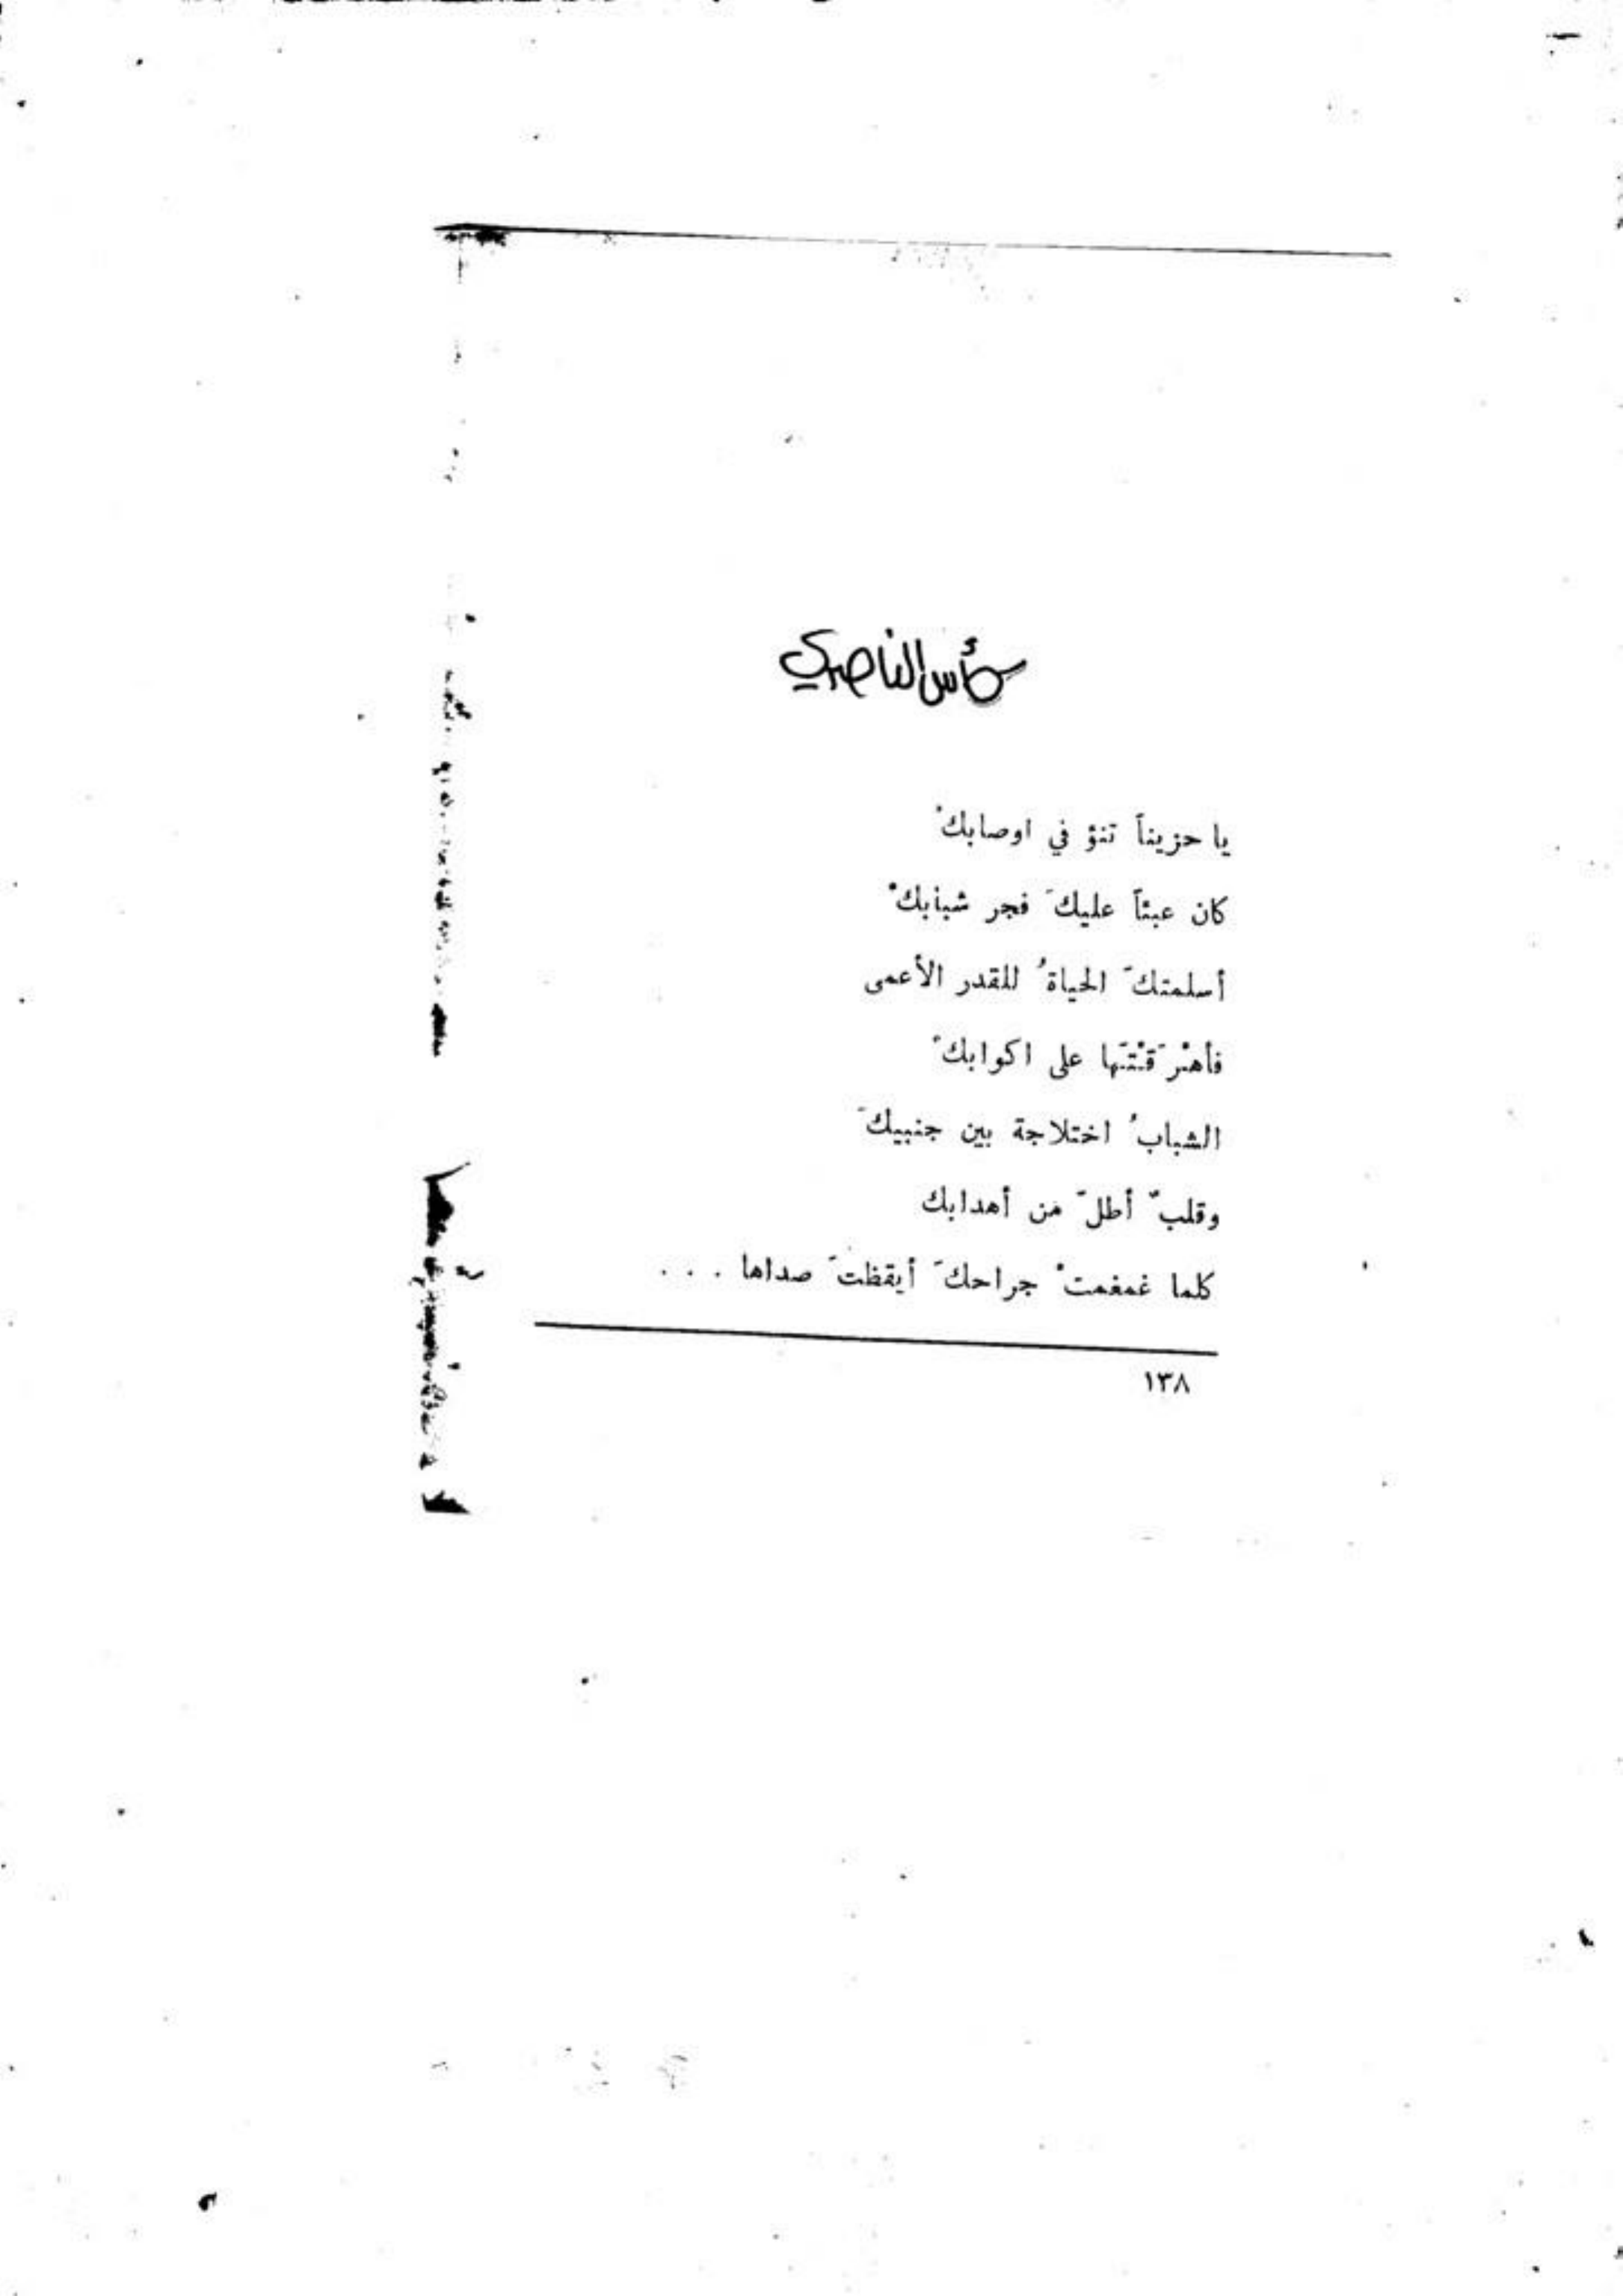 كأس الناصري
يا حزيناً تنؤ في اوصابكْ
كان عبئاً عليكَ فجر شبابكْ
أسلمتكَ الحياةُ للقدر الأعمى
على اكوابكْ
الشبابُ اختلاجة بين جنبيكَ
وقلبٌ أطلّ من أهدابك
كلما غمغمتْ جراحكَ أيقظتَ صداها . . .
١٣٨